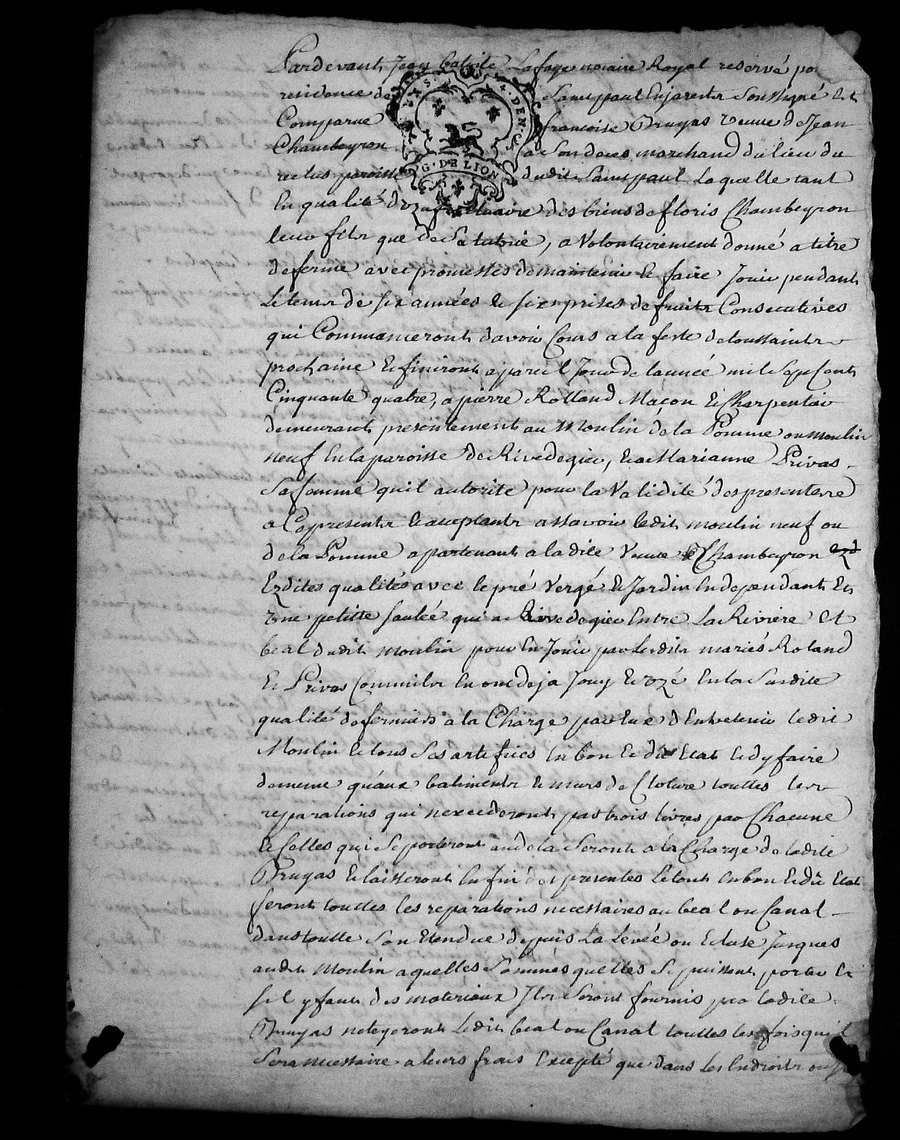 Pardevant Jean batiste Lafage notaire Royal reservé po
residence de Saint paul En jarest Soussigné Est
Comparue francoise Bruyas veuve de Jean
Chambeyron de Son vivant marchand du lieu du
reclus paroisse dudit Saint paul Laquelle tant
En qualité d'uzufruituaire des biens de floris Chambeyron
leur fils que de Sa tutrice, a volontairement donné a titre
de ferme avec promesses de maintenir et faire Jouir pendant
Le tems de Six années & Six prises de fruits Consecutives
qui Commenceront d'avoir Cours a la feste de toussaints
prochaine et finiront a pareil Jour de l'année mil Sept Cent
Cinquante quatre, a pierre Rolland Maçon & Charpentier
demeurant presentement au Moulin de la Pomme ou moulin
neuf En la paroisse de Rivedegier, & a Marianne Privas
Sa femme qu'il autorise pour la Validité des presentes
a Ce presents & acceptants assavoir ledit moulin neuf ou
de la Pomme apartenant a ladite Veuve Chambeyron
Ezdites qualités avec le pré Vergé & Jardin En dependant Et
Une petitte Saulée qui a Rivedegier Entre La Riviere Et
béal dudit moulin pour En Jouir par lesdits mariés Roland
Et Privas Comme ils En ont deja Jouy & uzé En la Susdite
qualité de fermiers a la Charge par Eux d'Entretenir ledit
Moulin & tous Ses artifices En bon & dû Etat & d'y faire
de meme qu'aux batiments & murs de Cloture touttes les
reparations qui n'excederont pas trois livres par Chacune
& Celles qui Se porteront au dela Seront a la Charge de ladite
Bruyas & laisseront En fin des presentes le tout En bon & dû Etat
feront touttes les reparations necessaires au beal ou Canal
dans toutte Son Etendue depuis La Levée ou Ecluse Jusques
audit Moulin a quelles Sommes quelles Se puissent porter Et
S'il y faut des materiaux Ils Seront fournis par ladite
Bruyas netoyeront Ledit beal ou Canal touttes les fois qu'il
Sera necessaire a leurs frais Excepté que dans les Endroits ou
G. DE LION